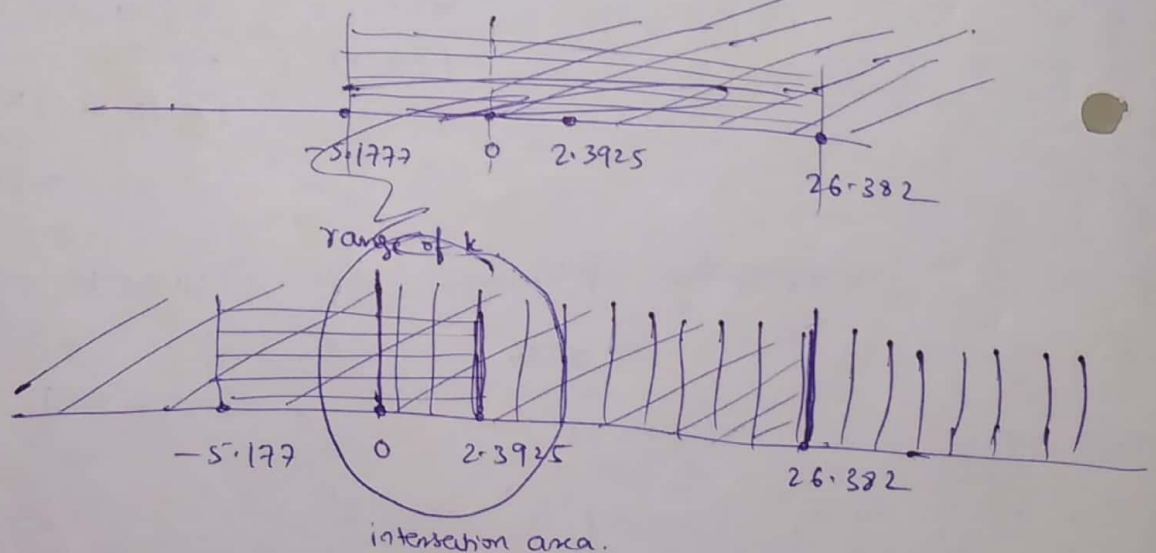 -5.1777 0 2.3925 26.382
range of k
-5.177 0 2.3925 26.382
intersection area.